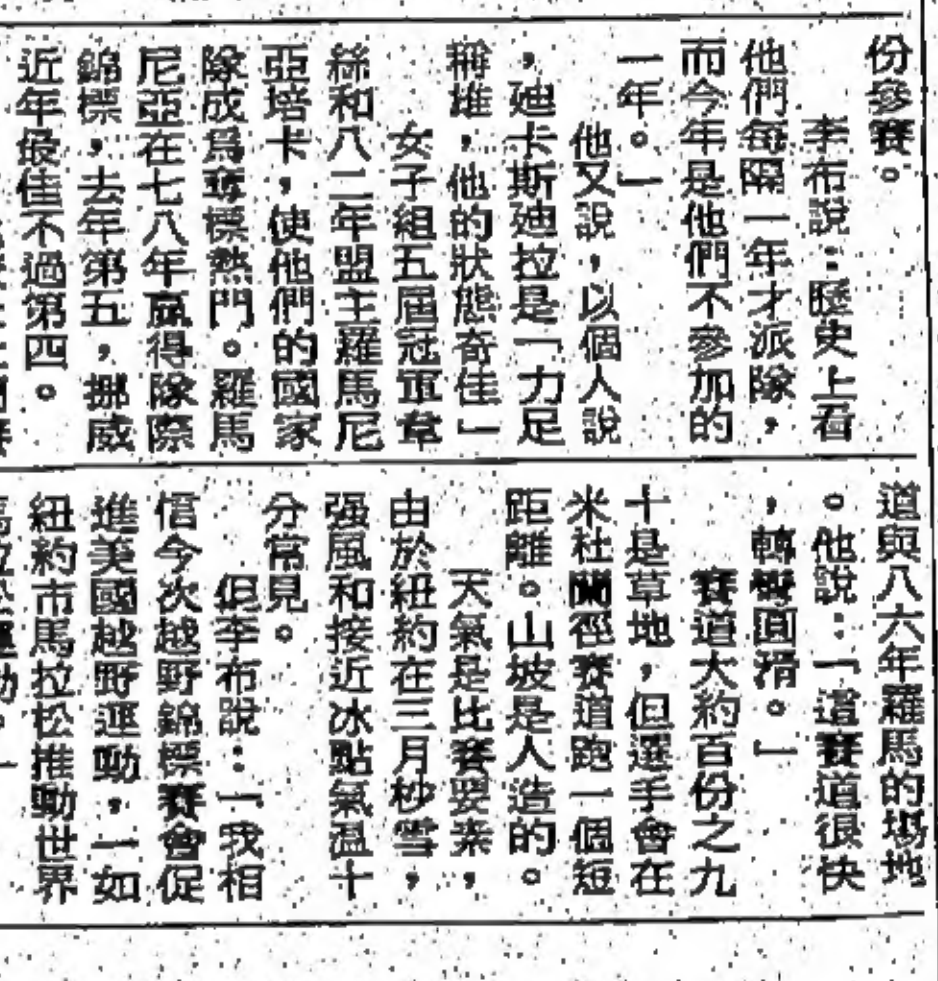 份參賽。
李布說：歷史上看
他們每隔一年才派隊，
而今年是他們不參加的
一年。」
他又說，以個人說
，廸卡斯廸拉是「力足
稱雄，他的狀態奇佳」
女子組五屆冠軍韋
絲和八二年盟主羅馬尼
亞培卡，使他們的國家
隊成爲奪標熱門。羅馬
尼亞在七八年贏得隊際
錦標，去年第五，挪威
近年最佳不過第四。
道與八六年羅馬的場地
。他說：「這賽道很快
，轉彎圓滑。」
賽道大約百份之九
十是草地，但選手會在
米杜蘭徑賽道跑一個短
距離。山坡是人造的。
天氣是比賽要素，
由於紐約在三月杪雪，
强風和接近冰點氣温十
分常見。
但李布說：「我相
信今次越野錦標賽會促
進美國越野運動，一如
紐約市馬拉松推動世界